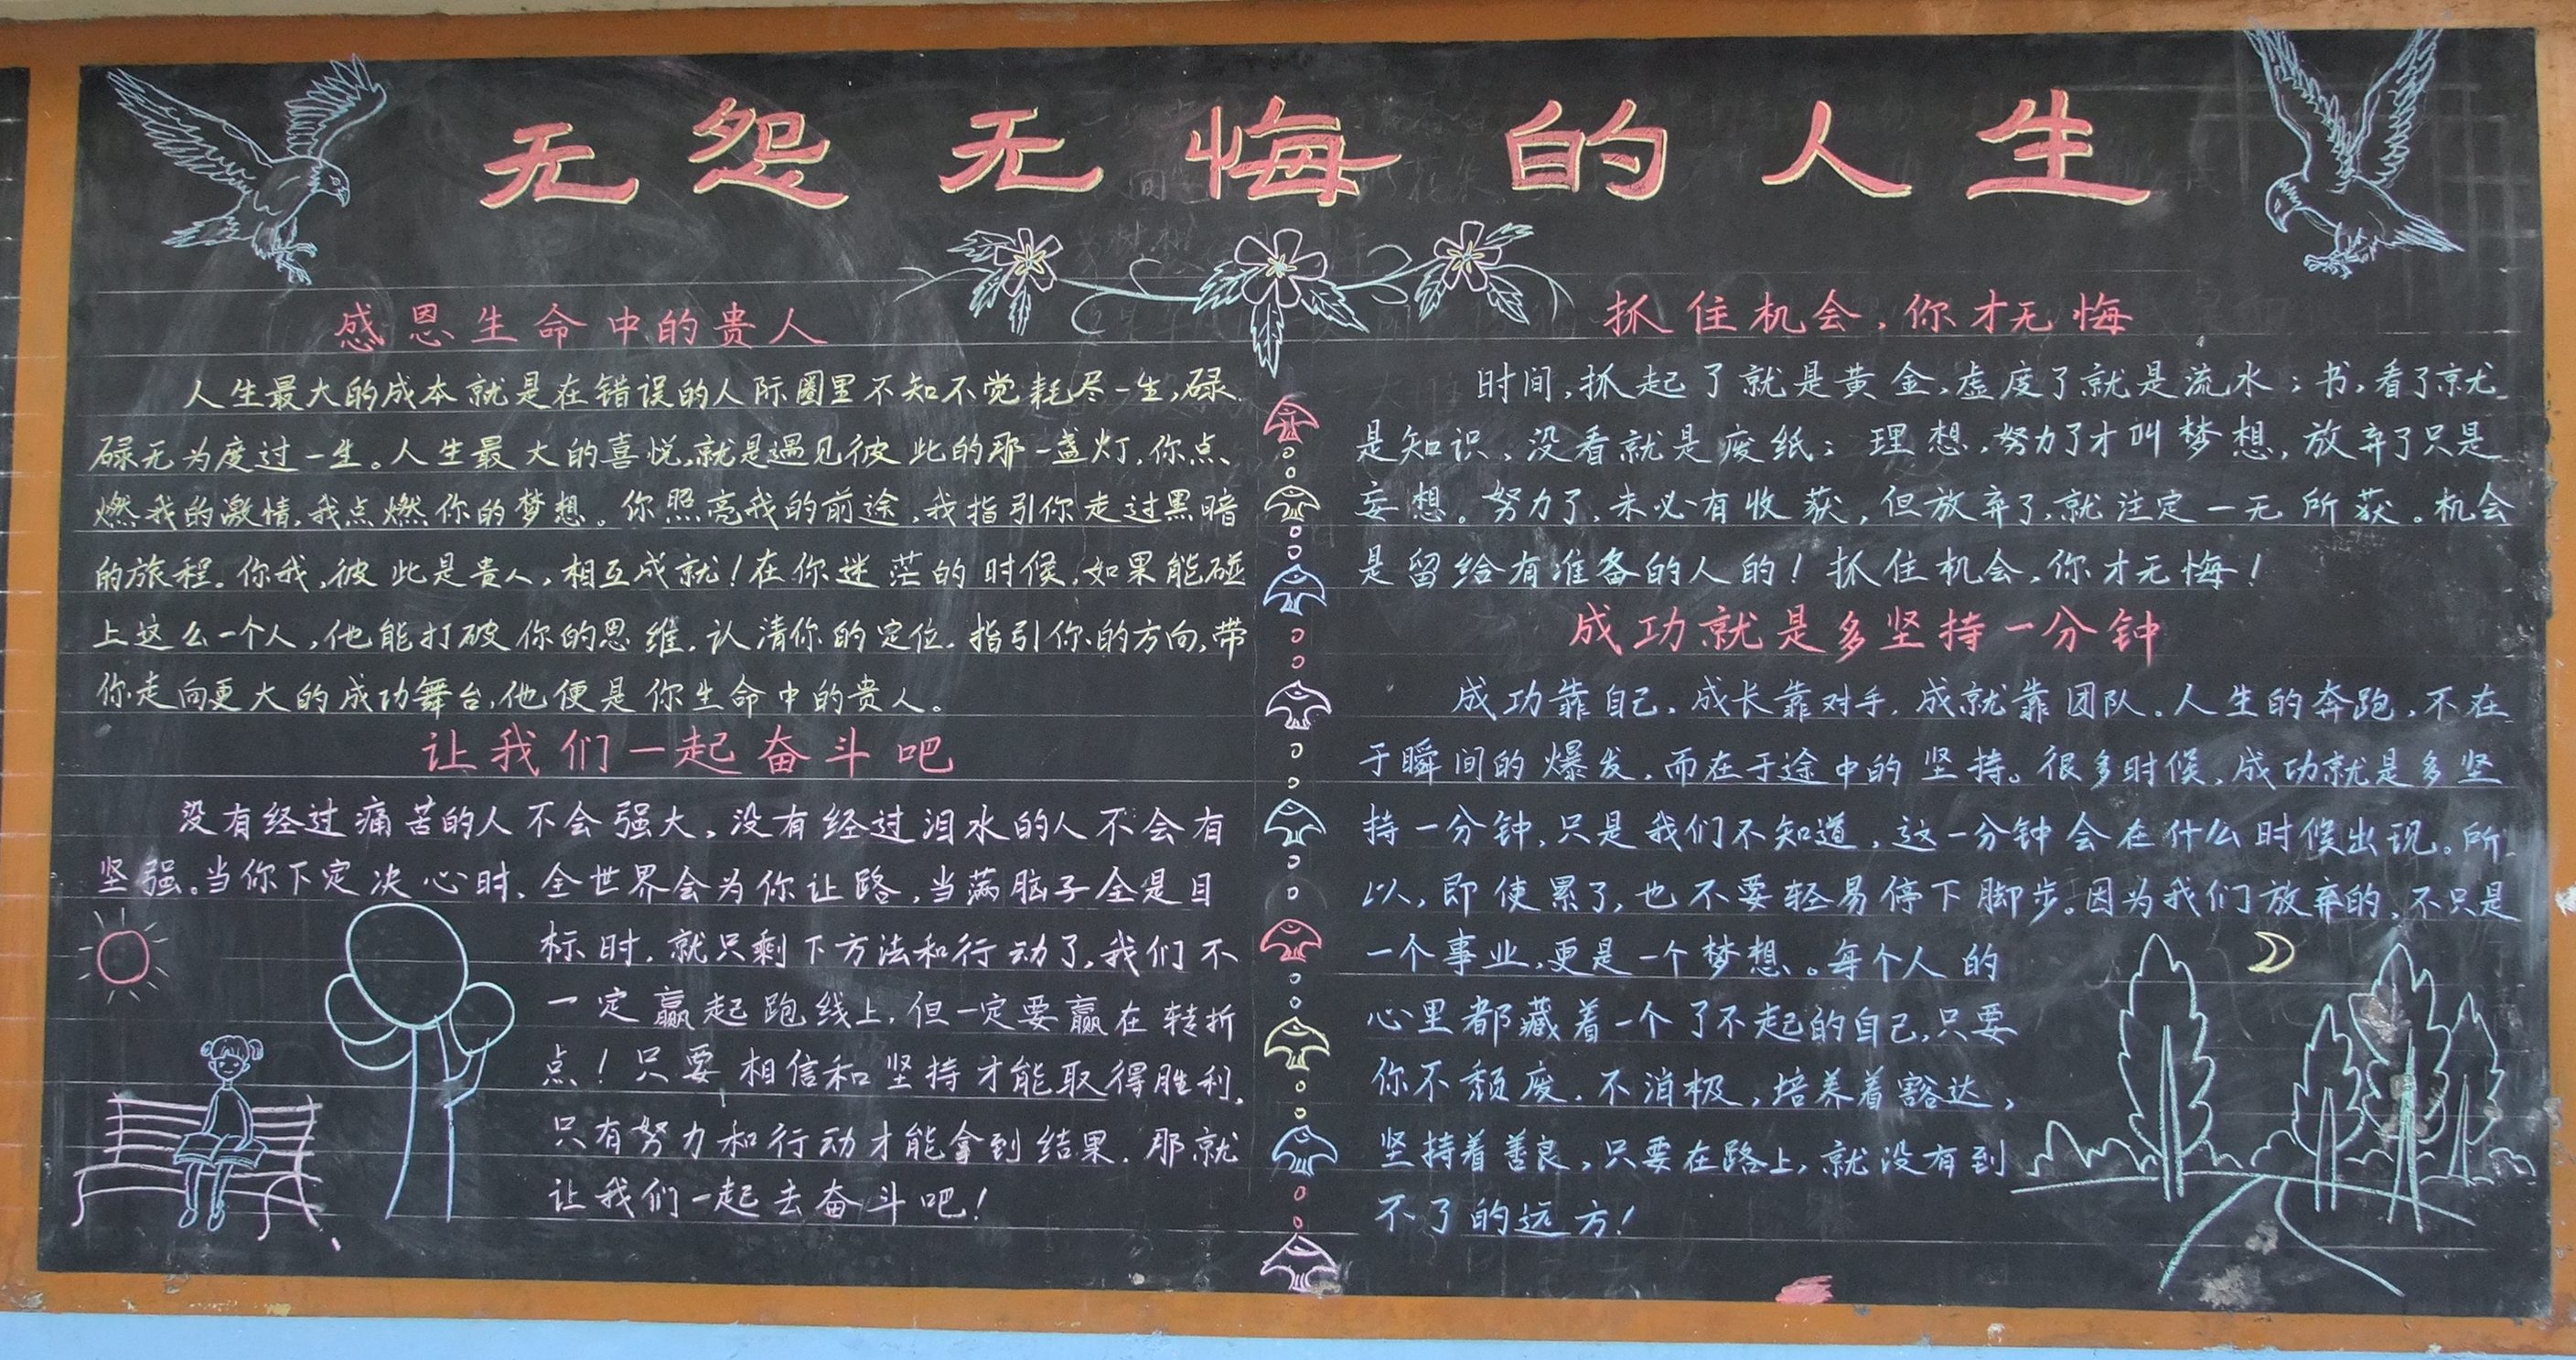 无怨无悔的人生
感恩生命中的贵人
人生最大的成本就是在错误的人际圈里不知不觉耗尽一生,碌
碌无为度过一生。人生最大的喜悦,就是遇见彼此的那一盏灯,你点
燃我的激情,我点燃你的梦想。你照亮我的前途,我指引你走过黑暗
的旅程。你我,彼此是贵人,相互成就!在你迷茫的时候,如果能碰
上这么一个人,他能打破你的思维,认清你的定位,指引你的方向,带
你走向更大的成功舞台,他便是你生命中的贵人。
让我们一起奋斗吧
没有经过痛苦的人不会强大,没有经过泪水的人不会有
坚强。当你下定决心时,全世界会为你让路,当满脑子全是目
标时,就只剩下方法和行动了,我们不
一定赢起跑线上,但一定要赢在转折
点!只要相信和坚持才能取得胜利,
只有努力和行动才能拿到结果,那就
让我们一起去奋斗吧!
抓住机会,你才无悔
时间,抓起了就是黄金,虚度了就是流水;书,看了就
是知识,没看就是废纸;理想,努力了才叫梦想,放弃了只是
妄想。努力了,未必有收获,但放弃了,就注定一无所获。机会
是留给有准备的人的!抓住机会,你才无悔!
成功就是多坚持一分钟
成功靠自己,成长靠对手,成就靠团队。人生的奔跑,不在
于瞬间的爆发,而在于途中的坚持。很多时候,成功就是多坚
持一分钟,只是我们不知道,这一分钟会在什么时候出现。所
以,即使累了,也不要轻易停下脚步。因为我们放弃的,不只是
一个事业,更是一个梦想。每个人的
心里都藏着一个了不起的自己,只要
你不颓废,不消极,培养着豁达,
坚持着善良,只要在路上,就没有到
不了的远方!